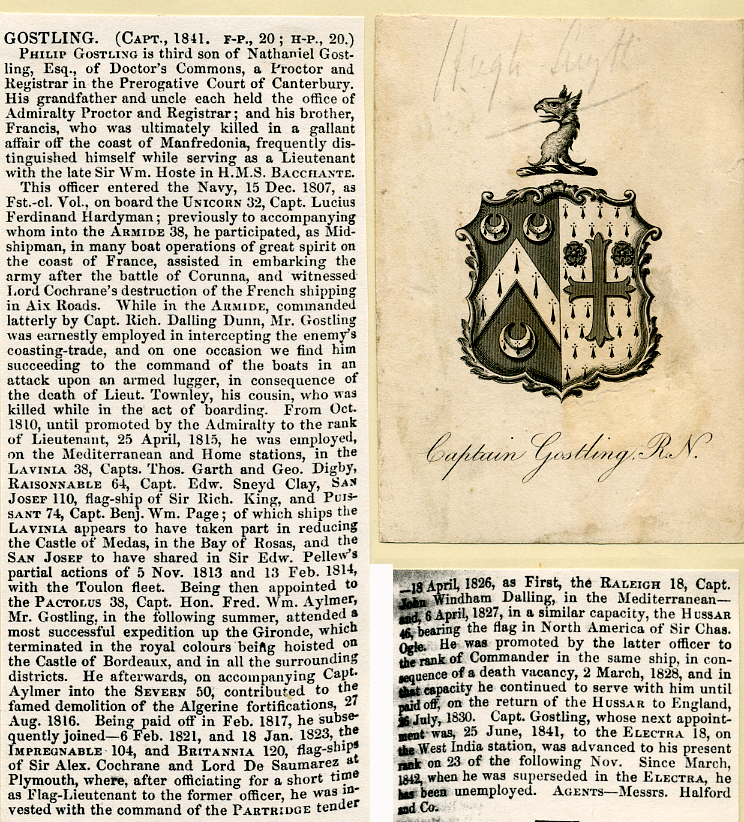 GOSTLING. (CAPT., 1841. F-P., 20; H-P., 20.)
PHILIP GOSTLING is third son of Nathaniel Gost-
ling, Esq., of Doctor's Commons, a Proctor and
Registrar in the Prerogative Court of Canterbury.
His grandfather and uncle each held the office of
Admiralty Proctor and Registrar; and his brother,
Francis, who was ultimately killed in a gallant
affair off the coast of Manfredonia, frequently dis-
tinguished himself while serving as a Lieutenant
with the late Sir Wm. Hoste in H.M.S. BACCHANTE.
This officer entered the Navy, 15 Dec. 1807, as
Fst.-cl. Vol., on board the UNICORN 32, Capt. Lucius
Ferdinand Hardyman; previously to accompanying
whom into the ARMIDE 38, he participated, as Mid-
shipman, in many boat operations of great spirit on
the coast of France, assisted in embarking the
army after the battle of Corunna, and witnessed
Lord Cochrane's destruction of the French shipping
in Aix Roads. While in the ARMIDE, commanded
latterly by Capt. Rich. Dalling Dunn, Mr. Gostling
was earnestly employed in intercepting the enemy's
coasting-trade, and on one occasion we find him
succeeding to the command of the boats in an
attack upon an armed lugger, in consequence of
the death of Lieut. Townley, his cousin, who was
killed while in the act of boarding. From Oct.
1810, until promoted by the Admiralty to the rank
of Lieutenant, 25 April, 1815, he was employed,
on the Mediterranean and Home stations, in the
LAVINIA 38, Capts. Thos. Garth and Geo. Digby,
RAISONNABLE 64, Capt. Edw. Sneyd Clay, SAN
JOSEF 110, flag-ship of Sir Rich. King, and PUIS-
SANT 74, Capt. Benj. Wm. Page; of which ships the
LAVINIA appears to have taken part in reducing
the Castle of Medas, in the Bay of Rosas, and the
SAN JOSEF to have shared in Sir Edw. Pellew's
partial actions of 5 Nov. 1813 and 13 Feb. 1814,
with the Toulon fleet. Being then appointed to
the PACTOLUS 38, Capt. Hon. Fred. Wm. Aylmer,
Mr. Gostling, in the following summer, attended a
most successful expedition up the Gironde, which
terminated in the royal colours being hoisted on
the Castle of Bordeaux, and in all the surrounding
districts. He afterwards, on accompanying Capt.
Aylmer into the SEVERN 50, contributed to the
famed demolition of the Algerine fortifications, 27
Aug. 1816. Being paid off in Feb. 1817, he subse-
quently joined—6 Feb. 1821, and 18 Jan. 1823, the
IMPREGNABLE 104, and BRITANNIA 120, flag-ships
of Sir Alex. Cochrane and Lord De Saumarez at
Plymouth, where, after officiating for a short time
as Flag-Lieutenant to the former officer, he was in-
vested with the command of the PARTRIDGE tender
Hugh Smyth
Captain Gostling. R.N.
—18 April, 1826, as First, the RALEIGH 18, Capt.
John Windham Dalling, in the Mediterranean—
and, 6 April, 1827, in a similar capacity, the HUSSAR
46, bearing the flag in North America of Sir Chas.
Ogle. He was promoted by the latter officer to
the rank of Commander in the same ship, in con-
sequence of a death vacancy, 2 March, 1828, and in
that capacity he continued to serve with him until
paid off, on the return of the HUSSAR to England,
July, 1830. Capt. Gostling, whose next appoint-
ment was, 25 June, 1841, to the ELECTRA 18, on
the West India station, was advanced to his present
rank on 23 of the following Nov. Since March,
1842, when he was superseded in the ELECTRA, he
has been unemployed. AGENTS—Messrs. Halford
and Co.